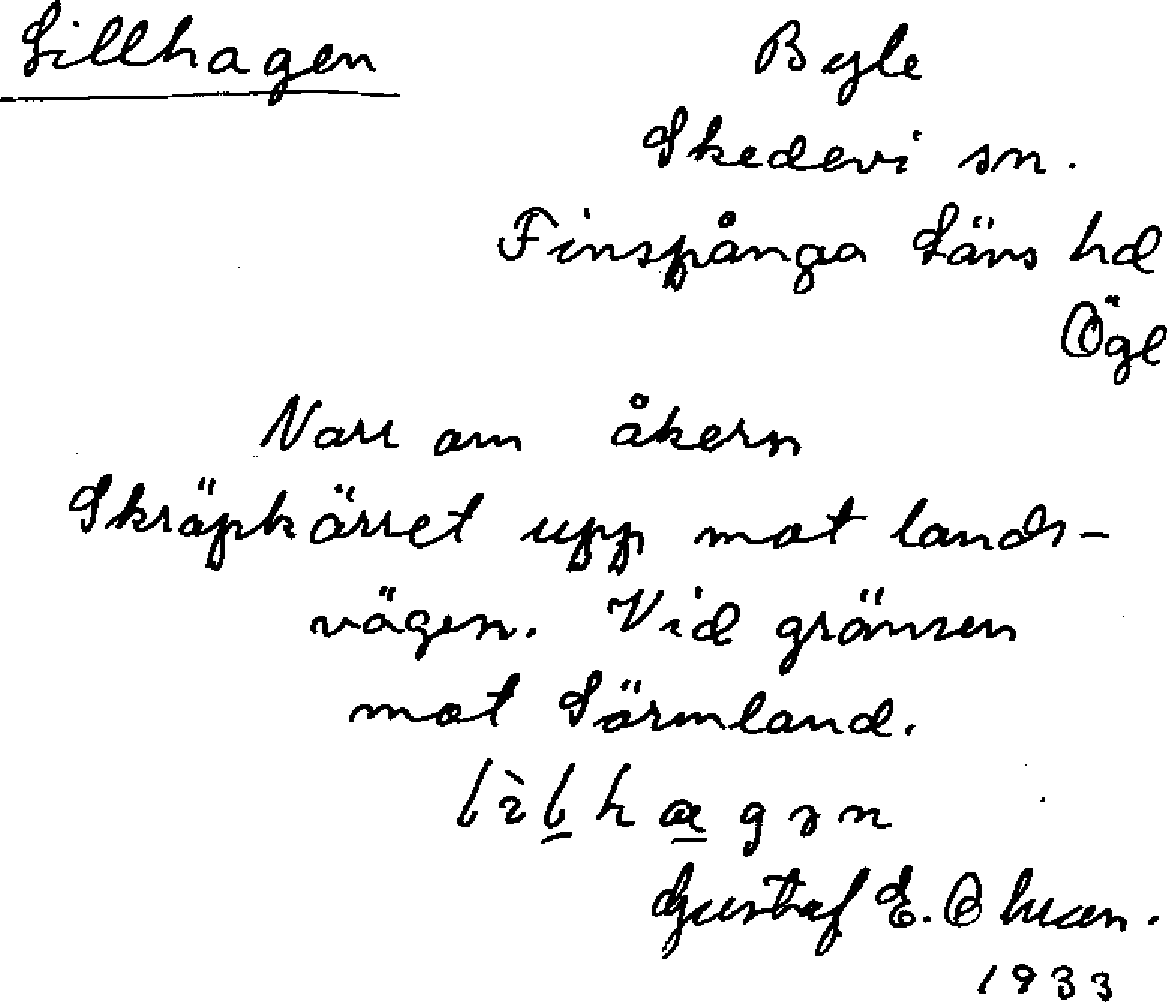 Lillhagen
Byle
Skedevi sn.
Finspånga Läns hd
Ögl
Norr om åkern
Skräpkärret upp mot lands-
vägen. Vid gränsen
mot Sörmland.
Gustaf E. Ohlson.
1933